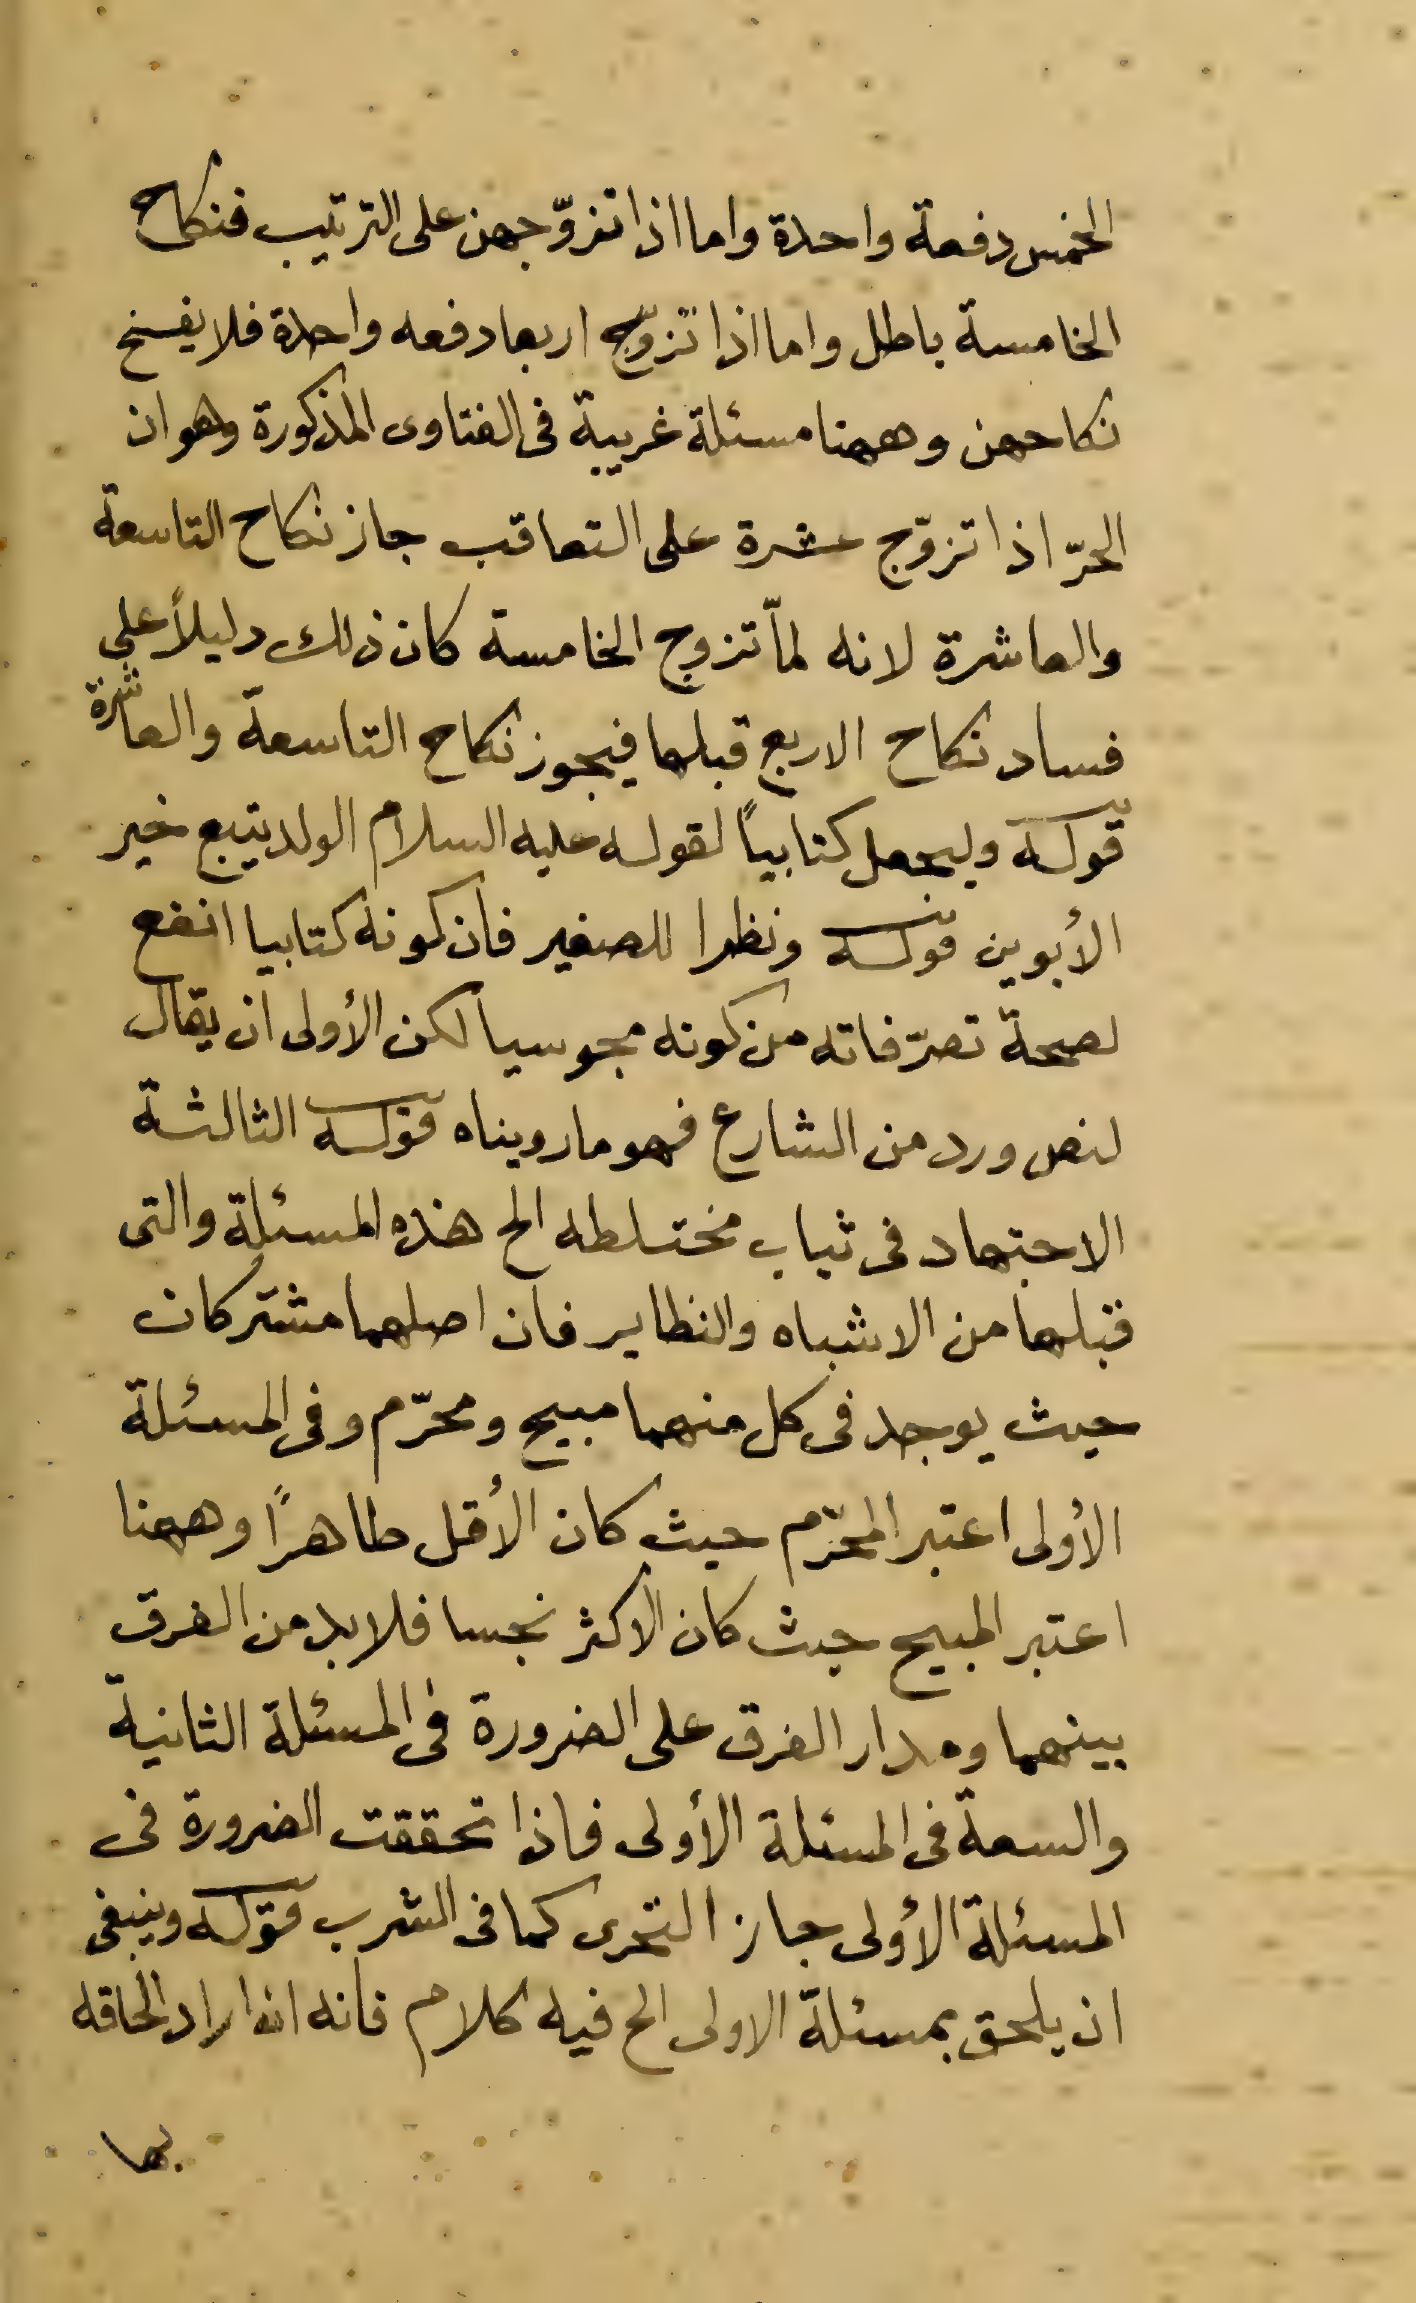 الخمس دفعة واحدة واما اذا تزوّجهن على الترتيب فنكاح
الخامسة باطل واما اذا تزوّج اربعا دفعه واحدة فلا يفسخ
نكاحهن وههنا مسئلة غريبة فى الفتاوى المذكورة وهو ان
الحرّ اذا تزوّج عشرة على التعاقب جاز نكاح التاسعة
والعاشرة لانه لمّا تزوج الخامسة كان ذلك دليلاً على
فساد نكاح الاربع قبلها فيجوز نكاح التاسعة والعاشرة
قوله ويجعل كتابياً لقوله عليه السلام الولد يتبع خير
الأبوين قوله ونظرا للصغير فان كونه كتابيا انفع
لصحة تصرّفاته من كونه مجوسيا لكن الأولى ان يقال
لنص ورد من الشارع فهو ما رويناه قوله الثالثة
الاجتهاد فى ثياب مختلطه الخ هذه المسئلة والتى
قبلها من الاشباه والنظاير فان اصلهما مشتركان
حيث يوجد فى كل منهما مبيح ومحرّم وفى المسئلة
الأولى اعتبر المحرّم حيث كان الأقل طاهراً وههنا
اعتبر المبيح حيث كان الاكثر نجسا فلا بد من الفرق
بينهما ومدار الفرق على الضرورة فى المسئلة الثانية
والسعة فى المسئلة الأولى فاذا تحققت الضرورة فى
المسئلة الأولى جاز التحرى كما فى الشرب قوله وينبغى
ان يلحق بمسئلة الاولى الخ فيه كلام فانه اذا اراد الحاقه
بها